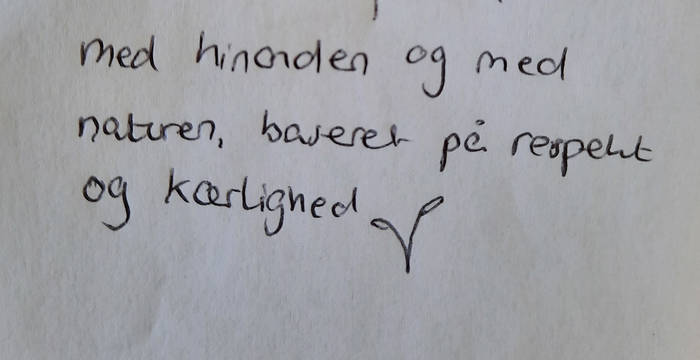 med hinanden og med
naturen, baseret på respekt
og kærlighed